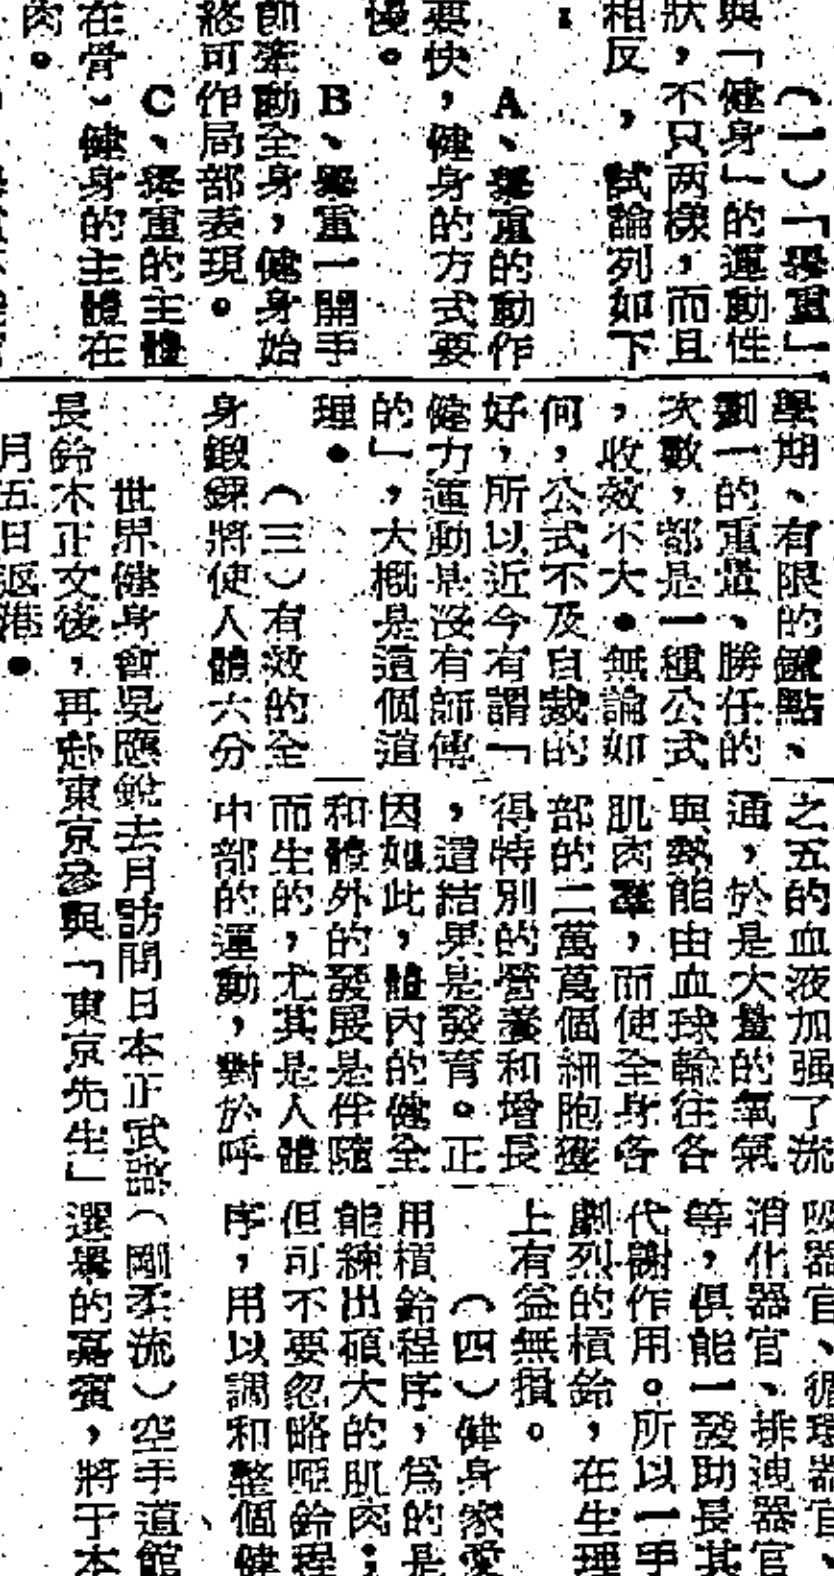 （１）「舉重」
與「健身」的運動性
狀，不只两樣，而且
相反，試論列如下
：
A、舉重的動作
要快，健身的方式要
慢。
B、舉重一開手
即牽動全身，健身始
終可作局部表現。
C、舉重的主體
在骨、健身的主體在
肉。
學期、有限的鐘點、
劃一的重量、勝任的
次數，都是一種公式
，收效不大。無論如
何，公式不及自裁的
好，所以近今有謂「
健力運動是沒有師傅
的」，大概是這個道
理。
（三）有效的全
身鍛鍊將使人體六分
之五的血液加强了流
通，於是大量的氧氣
與熱能由血球輸往各
肌肉羣，而使全身各
部的二萬萬個細胞獲
得特別的營養和增長
，這結果是發育。正
因如此，體內的健全
和體外的發展是伴隨
而生的，尤其是人體
中部的運動，對於呼
吸器官、循環器官、
消化器官、排洩器官
等，俱能一發助長其
代謝作用。所以一手
劇烈的槓鈴，在生理
上有益無損。
（四）健身家愛
用槓鈴程序，爲的是
能練出碩大的肌肉；
但可不要忽略啞鈴程
序，用以調和整個健
世界健身會吳應銳去月訪問日本正武館（剛柔流）空手道館
長鈴木正文後，再赴東京參與「東京先生」選舉的嘉賓，將于本
月五日返港。